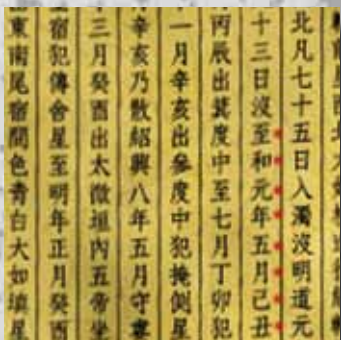 北凡七十五日入濁沒明道元
十三日沒至和元年五月己丑
丙辰出箕度中至七月丁卯犯
一月辛亥出參度中犯掩側星
辛亥乃散紹興八年五月守婁
三月癸酉出太微垣內五帝坐
宿犯傳舍星至明年正月癸酉
東南尾宿間色青白大如填星